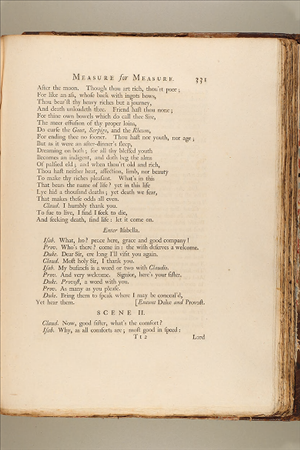 MEASURE for MEASURE. 331
After the moon. Though thou art rich, thou'rt poor;
For like an ass, whose back with ingots bows,
Thou bear'st thy heavy riches but a journey,
And death unloadeth thee. Friend hast thou none;
For thine own bowels which do call thee sire,
The meer effusion of thy proper loins,
Do curse the Gout, Serpigo, and the Rheum,
For ending thee no sooner. Thou hast nor youth, nor age;
But as it were an after-dinner's sleep,
Dreaming on both; for all thy blessed youth
Becomes as indigent, and doth beg the alms
Of palsied eld; and when thou'rt old and rich,
Thou hast neither heat, affection, limb, nor beauty
To make thy riches pleasant. What's in this
That bears the name of life? yet in this life
Lye hid a thousand deaths; yet death we fear,
That makes these odds all even.
Claud. I humbly thank you.
To sue to live, I find I seek to die,
And seeking death, find life: let it come on.
Enter Isabella.
Isab. What, ho? peace here, grace and good company!
Prov. Who's there? come in: the wish deserves a welcome.
Duke. Dear Sir, ere long I'll visit you again.
Claud. Most holy Sir, I thank you.
Isab. My business is a word or two with Claudio.
Prov. And very welcome. Signior, here's your sister.
Duke. Provost, a word with you.
Prov. As many as you please.
Duke. Bring them to speak where I may be conceal'd,
Yet hear them. [Exeunt Duke and Provost.
SCENE II.
Claud. Now, good sister, what's the comfort?
Isab. Why, as all comforts are; most good in speed:
Tt2 Lord